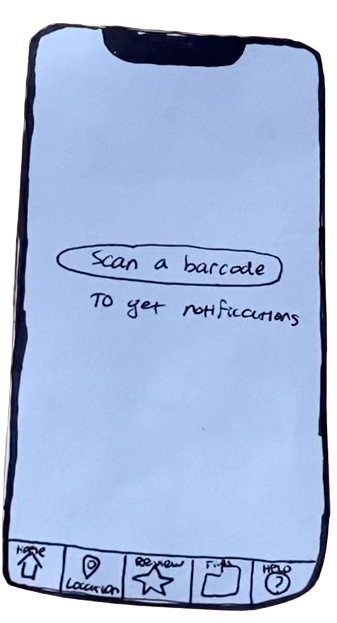 Scan a barcode
To get notifications
Home Location Review Files HELP
?